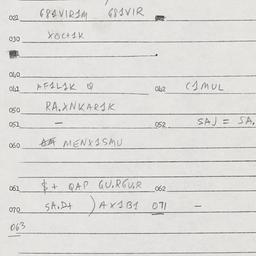 021 681VIR1M 681VIR
030 XOC+1K
040
041 AF1L1K Q 042 C1MUL
050 RA.XNKAR1K
051 – 052 SAJ = SA.
060 MENX1SMU
061 $+ QAP GU.RGUR 062
070 SA.D+ ) AX1B1 071 –
063